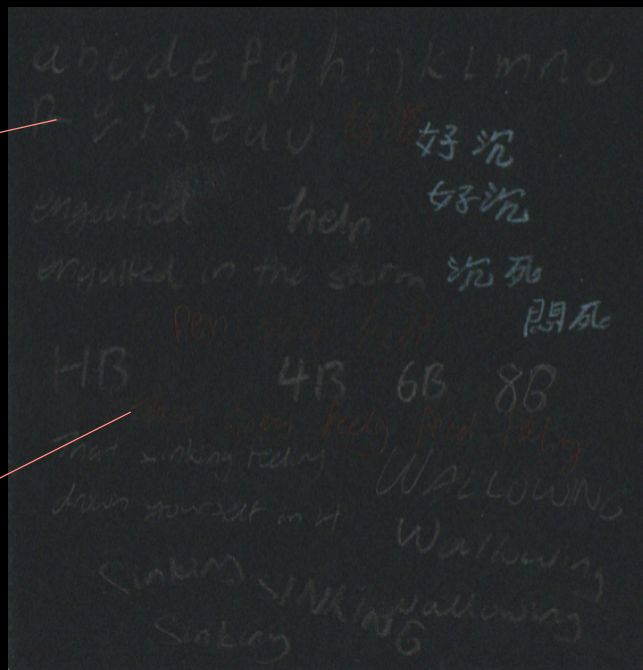 a b c d e f g h i j k l m n o
p q r s t u v
好沉
engulfed help 好沉
engulfed in the storm 沉死
悶死
pen
HB 4B 6B 8B
That sinking feeling
WALLOWING
drown yourself in it
Wallowing
Sinking SINKING wallowing
Sinking